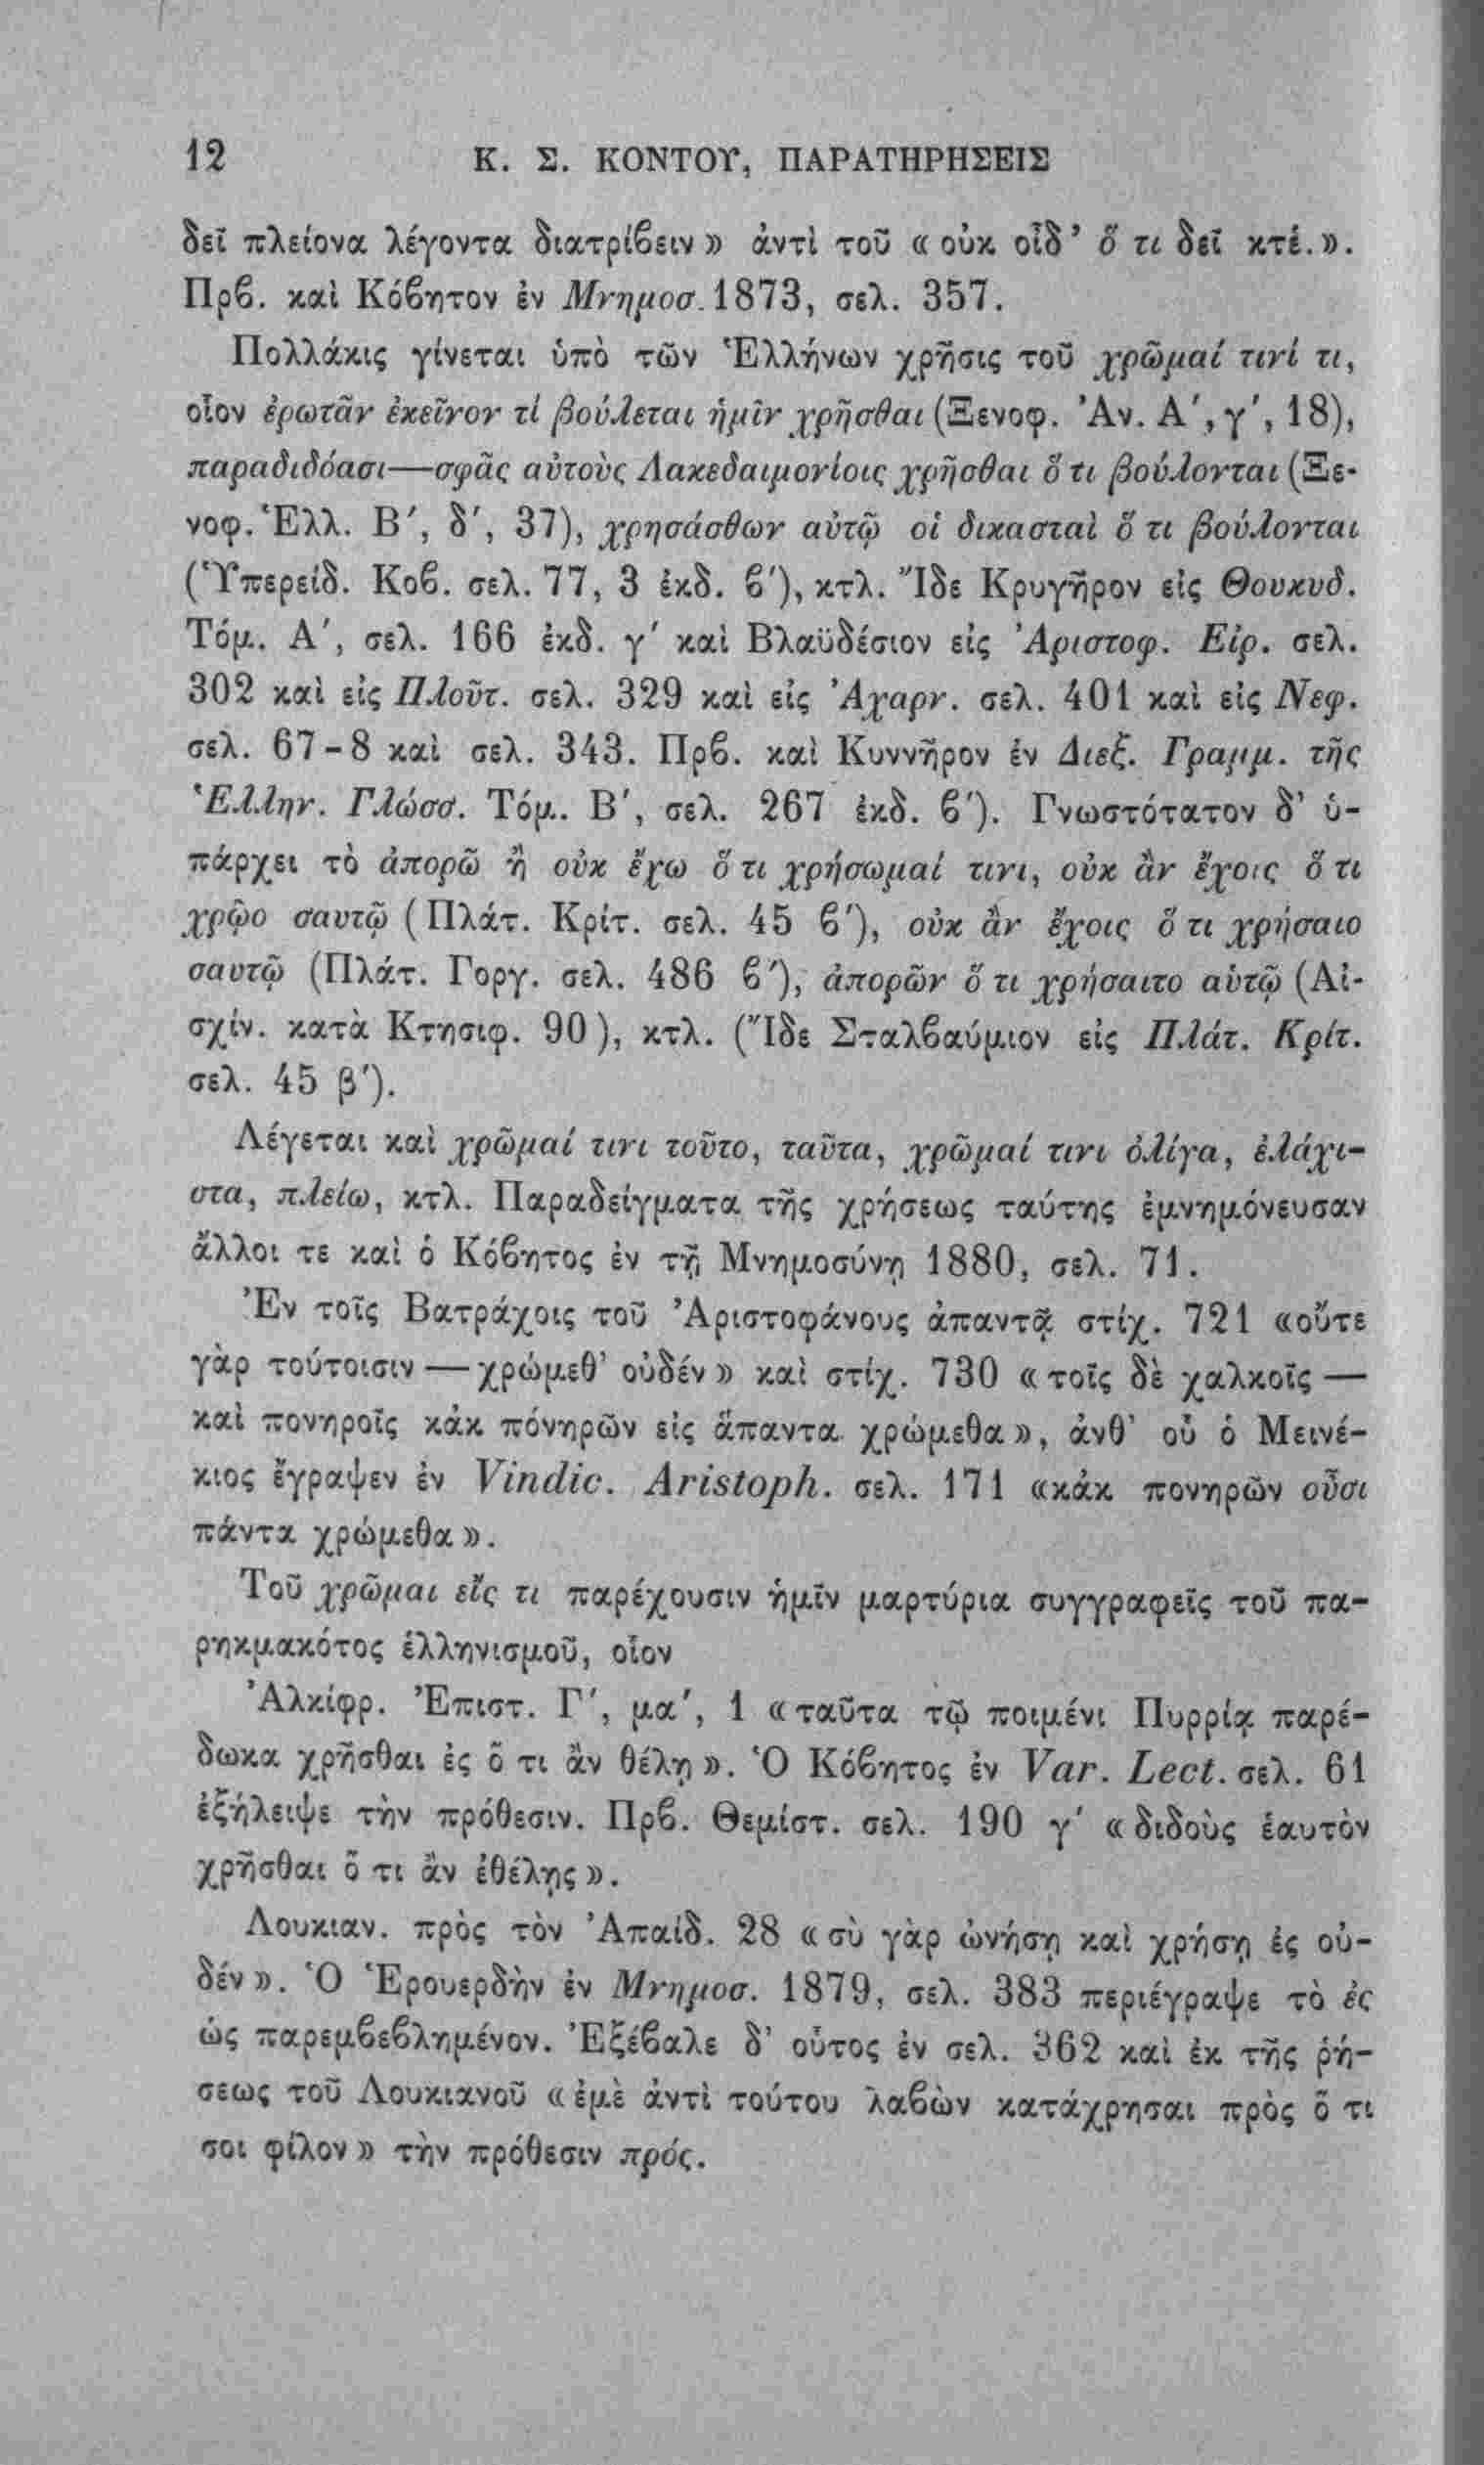 12 Κ. Σ. ΚΟΝΤΟΥ, ΠΑΡΑΤΗΡΗΣΕΙΣ
δεῖ πλείονα λέγοντα διατρίβειν» ἀντὶ τοῦ «οὐκ οἶδ’ ὅ τι δεῖ κτἑ.».
Πρβ. καὶ Κόβητον ἐν Μνημοσ. 1873, σελ. 357.
Πολλάκις γίνεται ὑπὸ τῶν Ἑλλήνων χρῆσις τοῦ χρῶμαί τινί τι,
οἷον ἐρωτᾶν ἐκεῖνον τί βούλεται ἡμῖν χρῆσθαι (Ξενοφ. Ἀν. Α΄, γ΄, 18),
παραδιδόασι—σφᾶς αὐτοὺς Λακεδαιμονίοις χρῆσθαι ὅ τι βούλονται (Ξε-
νοφ. Ἑλλ. Β΄, δ΄, 37), χρησάσθων αὐτῷ οἱ δικασταὶ ὅ τι βούλονται
(Ὑπερείδ. Κοβ. σελ. 77, 3 ἐκδ. β΄), κτλ. Ἴδε Κρυγῆρον εἰς Θουκυδ.
Τόμ. Α΄, σελ. 166 ἐκδ. γ΄ καὶ Βλαϋδέσιον εἰς Ἀριστοφ. Εἰρ. σελ.
302 καὶ εἰς Πλοῦτ. σελ. 329 καὶ εἰς Ἀχαρν. σελ. 401 καὶ εἰς Νεφ.
σελ. 67-8 καὶ σελ. 343. Πρβ. καὶ Κυννῆρον ἐν Διεξ. Γραμμ. τῆς
Ἑλλην. Γλώσσ. Τόμ. Β΄, σελ. 267 ἐκδ. β΄). Γνωστότατον δ’ ὑ-
πάρχει τὸ ἀπορῶ ἢ οὐκ ἔχω ὅ τι χρήσωμαί τινι, οὐκ ἂν ἔχοις ὅ τι
χρῷο σαυτῷ (Πλάτ. Κρίτ. σελ. 45 β΄), οὐκ ἂν ἔχοις ὅ τι χρήσαιο
σαυτῷ (Πλάτ. Γοργ. σελ. 486 β΄), ἀπορῶν ὅ τι χρήσαιτο αὑτῷ (Αἰ-
σχίν. κατὰ Κτησιφ. 90), κτλ. (Ἴδε Σταλβαύμιον εἰς Πλάτ. Κρίτ.
σελ. 45 β΄).
Λέγεται καὶ χρῶμαί τινι τοῦτο, ταῦτα, χρῶμαί τινι ὀλίγα, ἐλάχι-
στα, πλείω, κτλ. Παραδείγματα τῆς χρήσεως ταύτης ἐμνημόνευσαν
ἄλλοι τε καὶ ὁ Κόβητος ἐν τῇ Μνημοσύνῃ 1880, σελ. 71.
Ἐν τοῖς Βατράχοις τοῦ Ἀριστοφάνους ἀπαντᾷ στίχ. 721 «οὔτε
γὰρ τούτοισιν — χρώμεθ’ οὐδέν» καὶ στίχ. 730 «τοῖς δὲ χαλκοῖς —
καὶ πονηροῖς κἀκ πόνηρῶν εἰς ἅπαντα χρώμεθα», ἀνθ’ οὗ ὁ Μεινέ-
κιος ἔγραψεν ἐν Vindic. Aristoph. σελ. 171 «κἀκ πονηρῶν οὖσι
πάντα χρώμεθα».
Τοῦ χρῶμαι εἴς τι παρέχουσιν ἡμῖν μαρτύρια συγγραφεῖς τοῦ πα-
ρηκμακότος ἑλληνισμοῦ, οἷον
Ἀλκίφρ. Ἐπιστ. Γ΄, μα΄, 1 «ταῦτα τῷ ποιμένι Πυρρίᾳ παρέ-
δωκα χρῆσθαι ἐς ὅ τι ἂν θέλῃ». Ὁ Κόβητος ἐν Var. Lect. σελ. 61
ἐξήλειψε τὴν πρόθεσιν. Πρβ. Θεμίστ. σελ. 190 γ΄ «διδοὺς ἑαυτὸν
χρῆσθαι ὅ τι ἂν ἐθέλῃς».
Λουκιαν. πρὸς τὸν Ἀπαίδ. 28 «σὺ γὰρ ὠνήσῃ καὶ χρήσῃ ἐς οὐ-
δέν». Ὁ Ἑρουερδὴν ἐν Μνημοσ. 1879, σελ. 383 περιέγραψε τὸ ἐς
ὡς παρεμβεβλημένον. Ἐξέβαλε δ’ οὗτος ἐν σελ. 362 καὶ ἐκ τῆς ῥή-
σεως τοῦ Λουκιανοῦ «ἐμὲ ἀντὶ τούτου λαβὼν κατάχρησαι πρὸς ὅ τι
σοι φίλον» τὴν πρόθεσιν πρός.